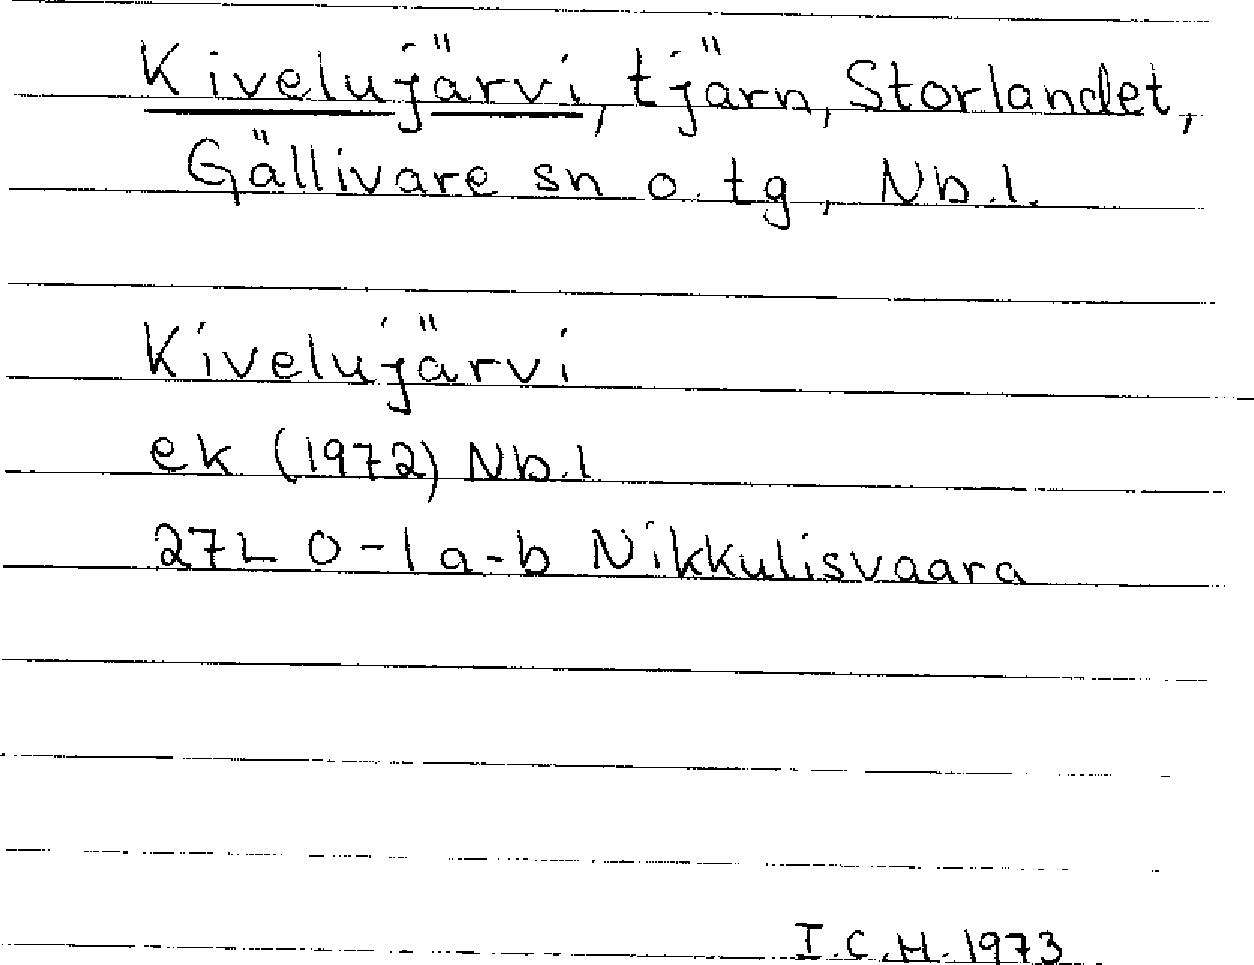 Kivelujärvi, tjärn, Storlandet,
Gällivare sn o. tg, Nb.l.
Kivelujärvi
ek (1972) Nb.l
27L 0-1 a-b Nikkulisvaara
I.C.H. 1973